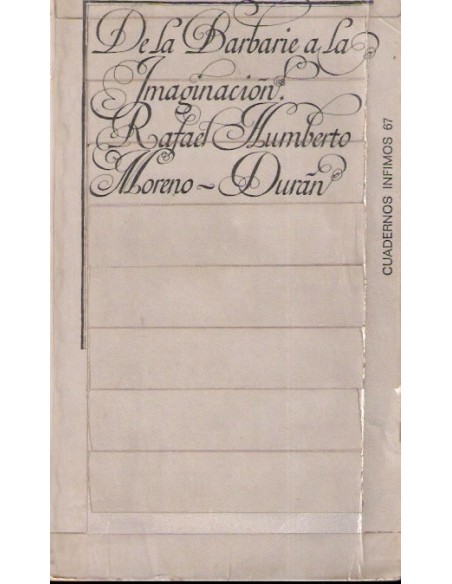 De la Barbarie a la
Imaginación.
Rafael Humberto
Moreno~Durán
CUADERNOS INFIMOS 67